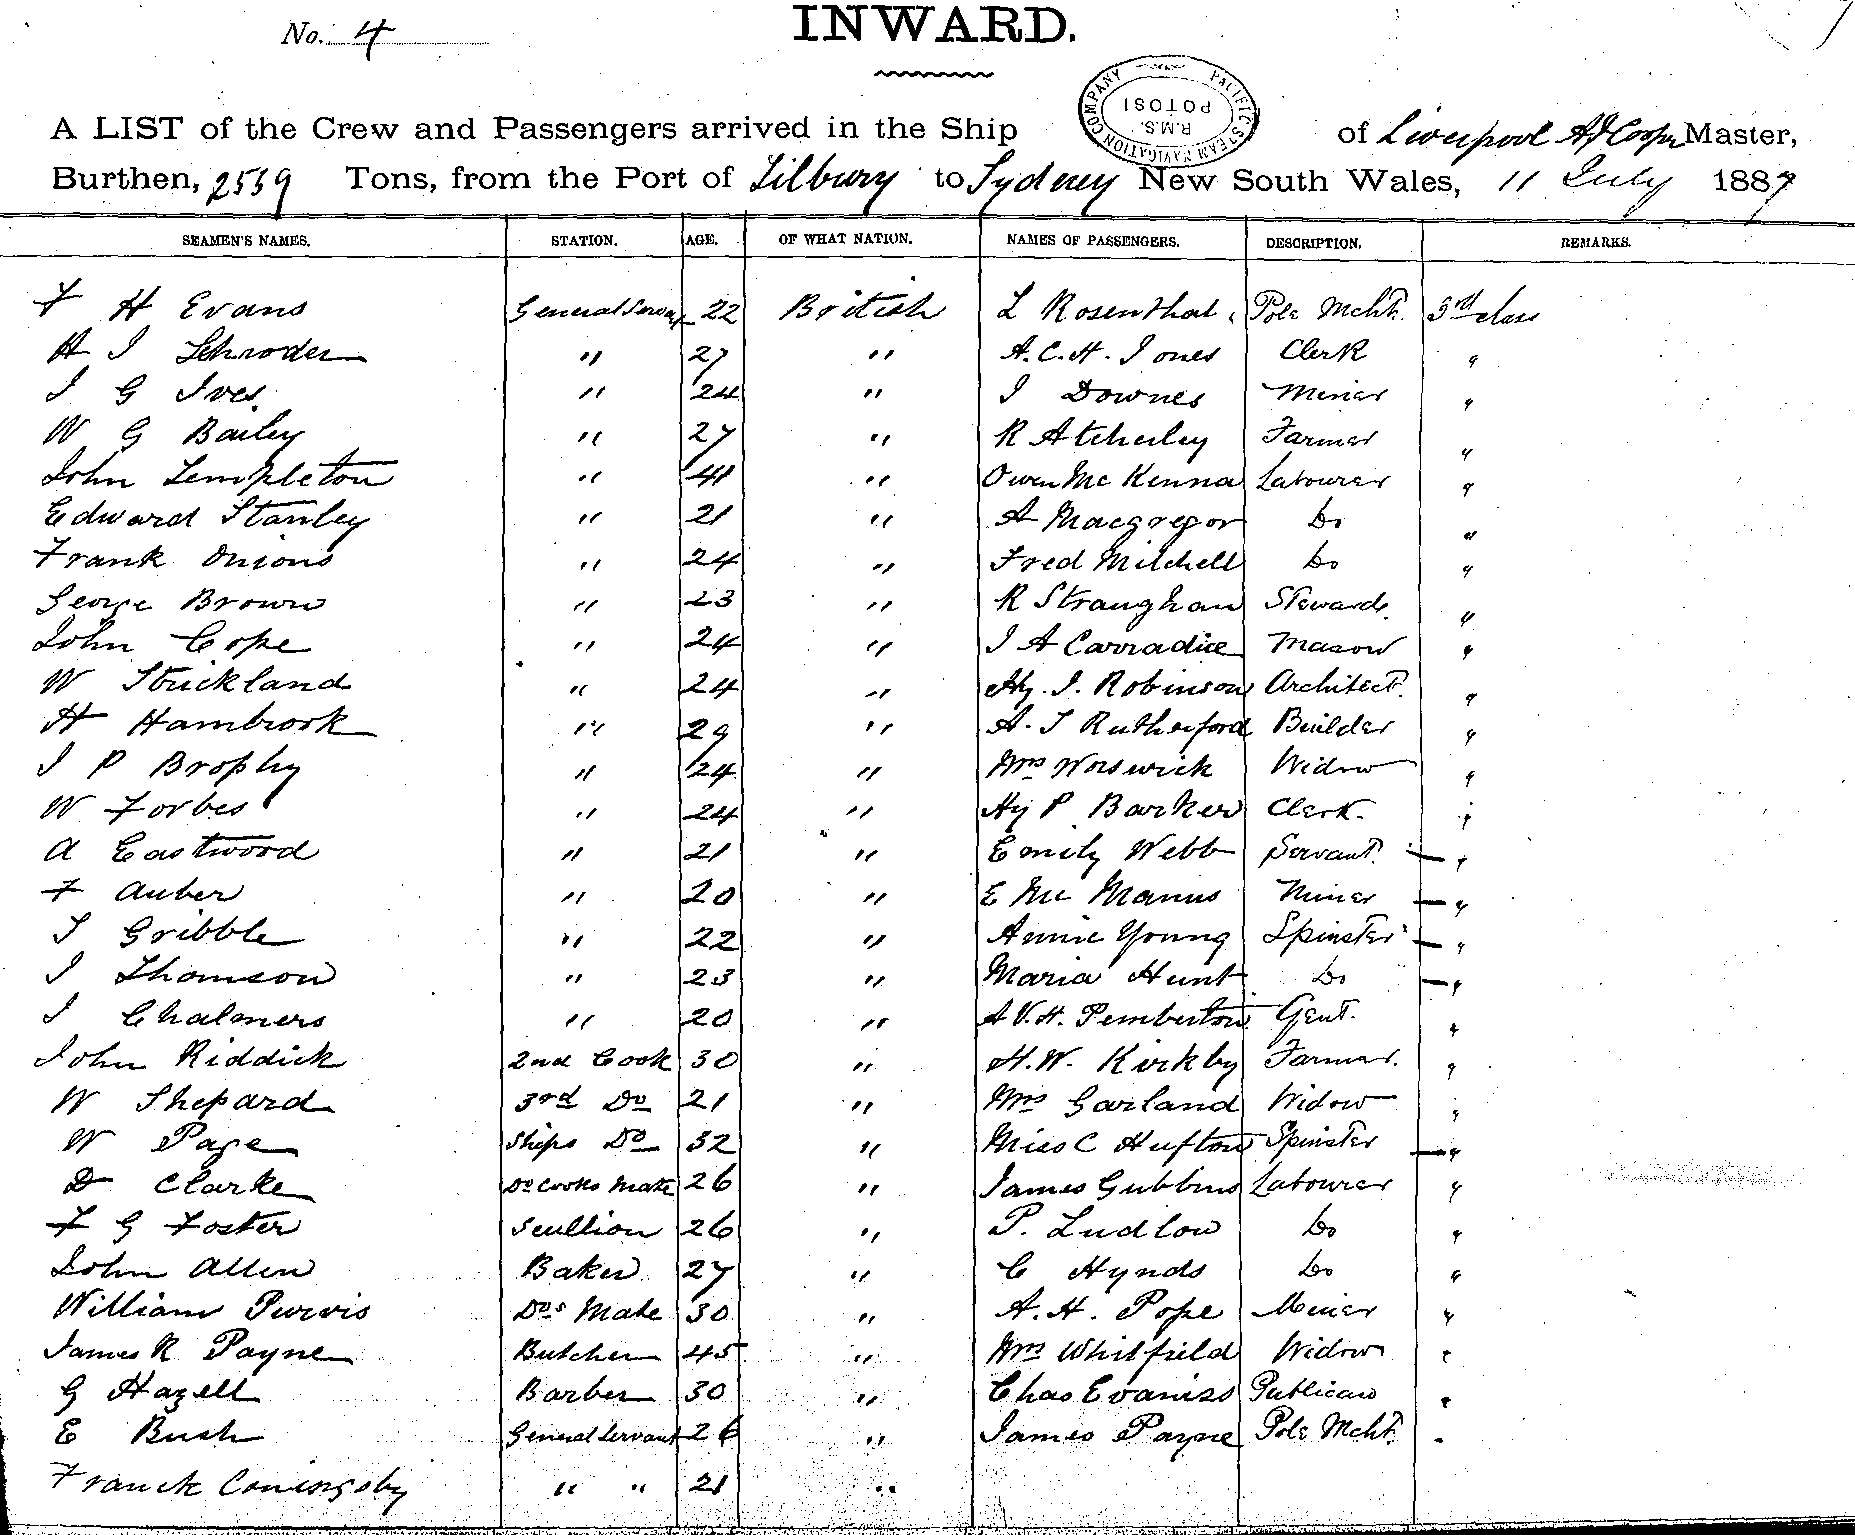 No. 4
INWARD.
PACIFIC STEAM NAVIGATION COMPANY R.M.S. POTOSI
A LIST of the Crew and Passengers arrived in the Ship of Liverpool Master,
Burthen, 2539 Tons, from the Port of Tilbury to Sydney New South Wales, 11 July 1887
SEAMEN'S NAMES. STATION. AGE. OF WHAT NATION. NAMES OF PASSENGERS. DESCRIPTION. REMARKS.
F H Evans General Servant 22 British L Rosenthal Mcht. 3rd class
H J Schroder " 27 " A. C. H. Jones Clerk "
J G Ives " 24 " J Downes Miner "
W G Bailey " 27 " R Atcherley Farmer "
John Templeton " 41 " Owen McKenna Labourer "
Edward Stanley " 21 " A Macgregor Do "
Frank Onions " 24 " Fred Mitchell Do "
George Brown " 23 " R Straughan Steward "
John Cope " 24 " J A Carradice Mason "
W Strickland " 24 " Hy. J. Robinson Architect "
H Hambrook " 29 " A. J Rutherford Builder "
J P Brophy " 24 " Mrs Worswick Widow "
W Forbes " 24 " Hy P Barker Clerk "
A Eastwood " 21 " Emily Webb Servant "
F Auber " 20 " E McManus Miner "
J Gribble " 22 " Annie Young Spinster "
J Thomson " 23 " Maria Hunt Do "
J Chalmers " 20 " A V. H. Pemberton Gent. "
John Riddick 2nd Cook 30 " H. W. Kirkby Farmer "
W Shepard 3rd Do 21 " Mrs Garland Widow "
W Page Ships Do 32 " Miss C Hufton Spinster "
D Clarke Do Cooks Mate 26 " James Gubbins Labourer "
F G Foster Scullion 26 " P. Ludlow Do "
John Allen Baker 27 " C Hynds Do "
William Purvis Dos Mate 30 " A. H. Pope Miner "
James R Payne Butcher 45 " Mrs Whitfield Widow "
G Hazell Barber 30 " Chas Evaniss Publican "
E Bush General Servant 26 " James Payne Mcht. "
Franck Coningsby " " 21 "